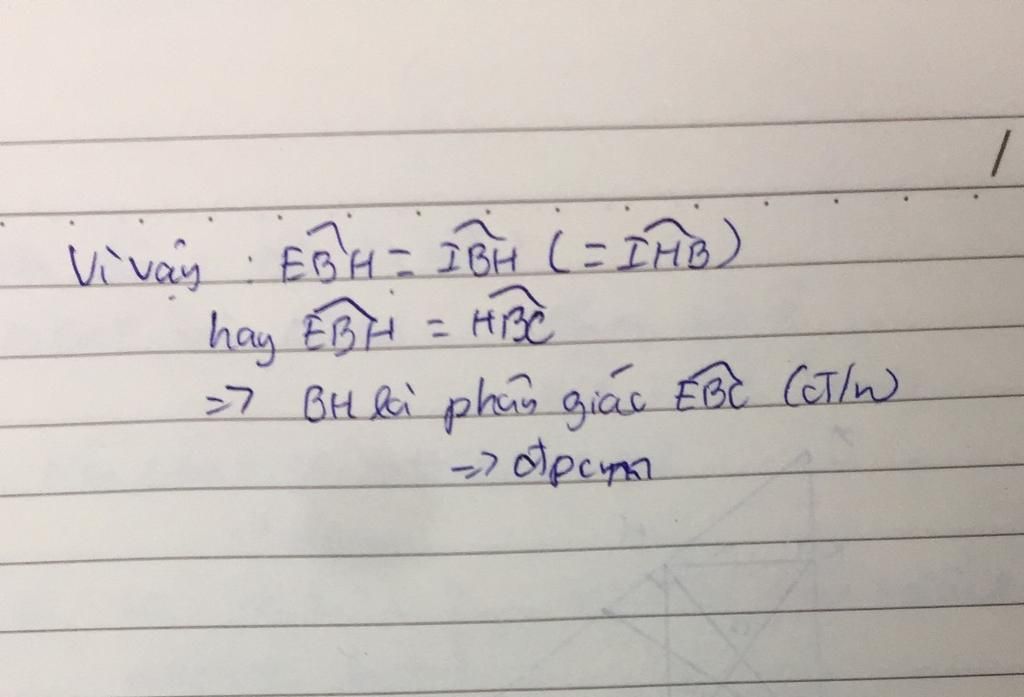 Vì vậy : EB̂H = IB̂H (= IĤB)
hay EB̂H = HB̂C
=> BH là phân giác EB̂C (đ/n)
=> đpcm